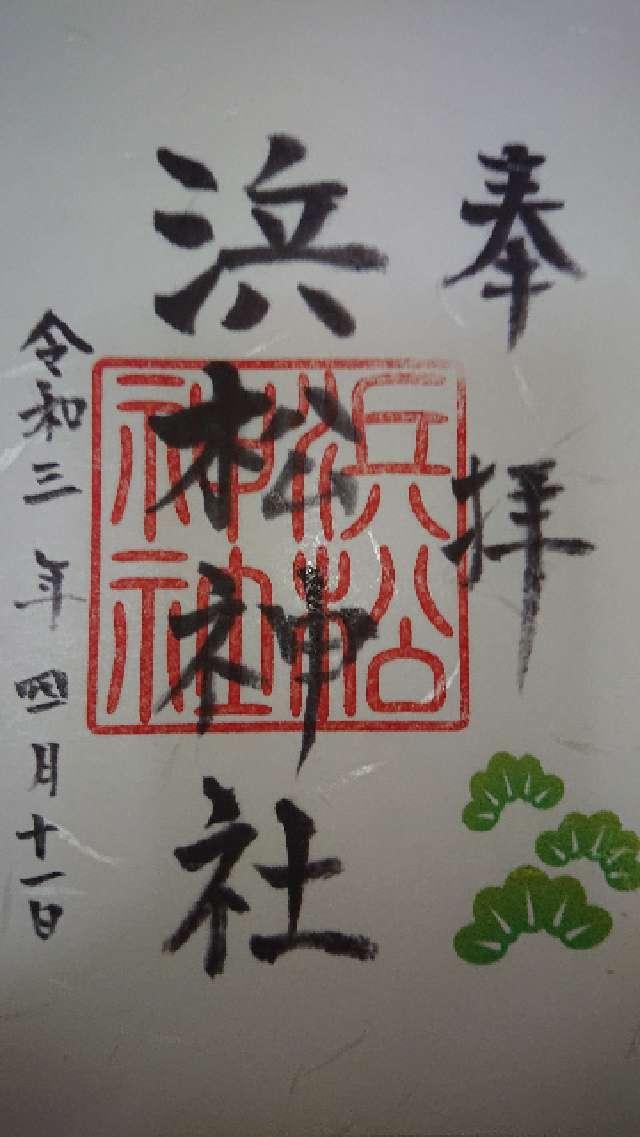 奉拝
浜松神社
浜松
神社
令和三年四月十一日